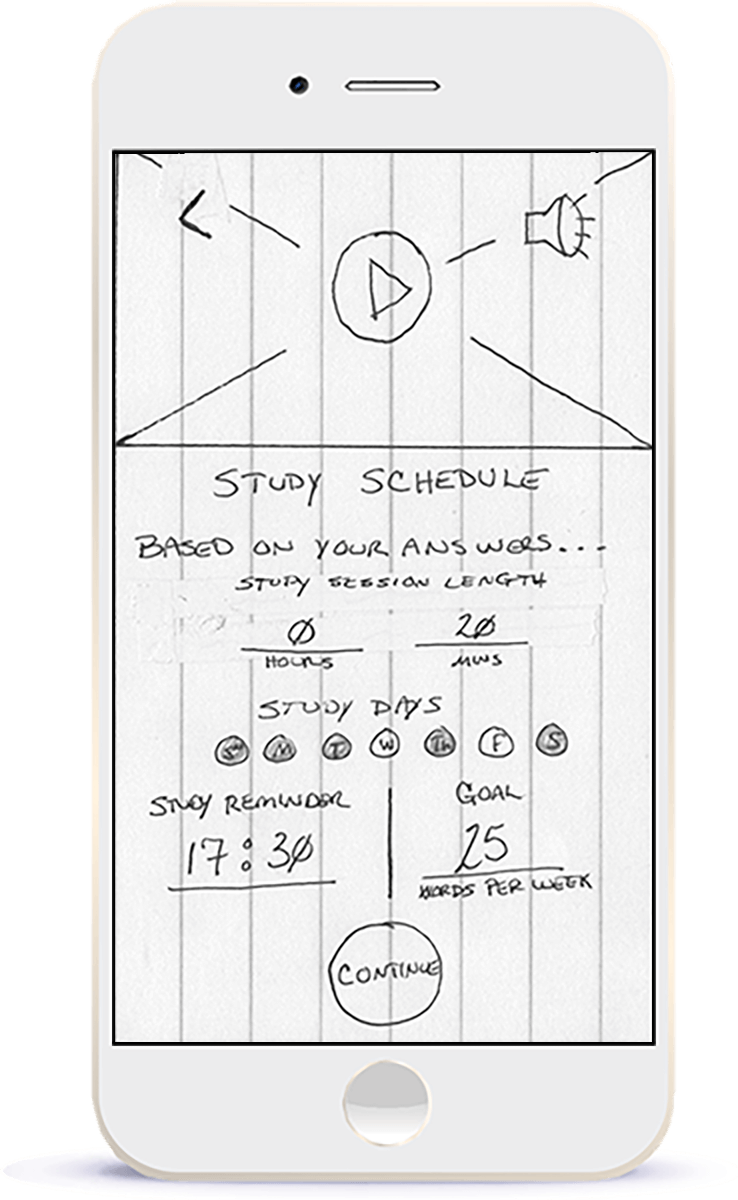 STUDY SCHEDULE
BASED ON YOUR ANSWERS...
STUDY SESSION LENGTH
0 20
HOURS MINS
STUDY DAYS
Su M T W Th F S
STUDY REMINDER GOAL
17:30 25
WORDS PER WEEK
CONTINUE